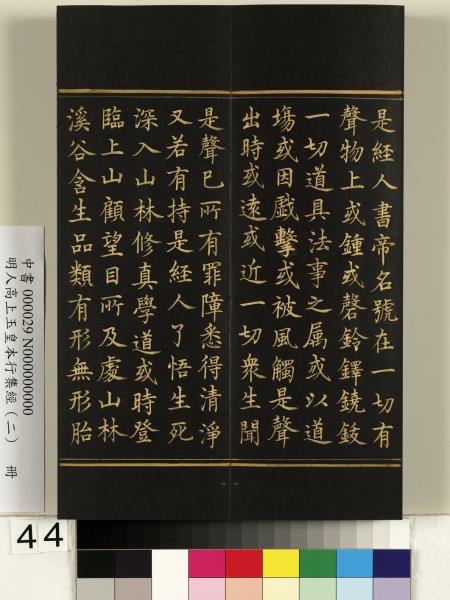 是經人書帝名號在一切有
聲物上或鍾或磬鈴鐸鐃鈸
一切道具法事之属或以道
塲或因戲擊或被風觸是聲
出時或遠或近一切衆生聞
是聲已所有罪障悉得清淨
又若有持是經人了悟生死
深入山林修真學道或時登
臨上山顧望目所及處山林
溪谷含生品類有形無形胎
中書 000029 N000000000
明人高上玉皇本行集經（二） 冊
44